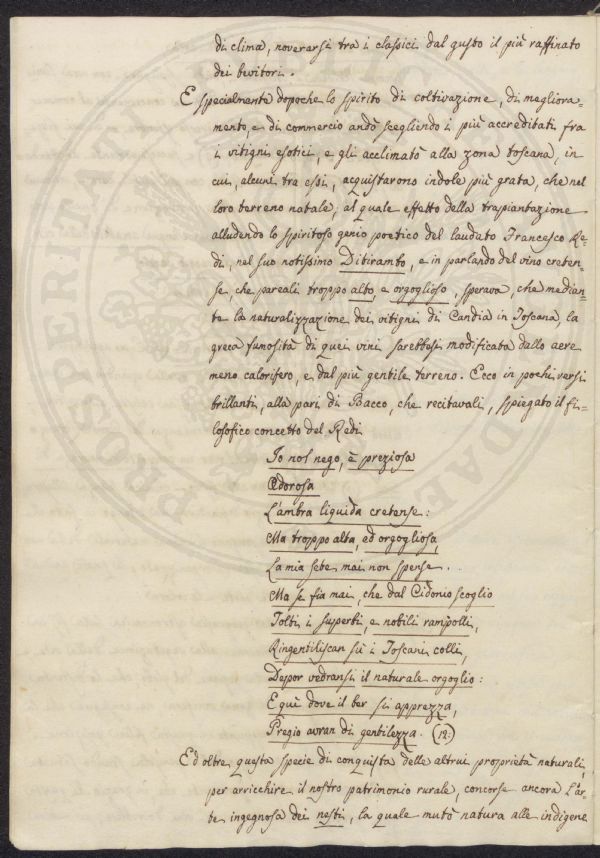 di clima, noverarsi tra i classici dal gusto il più raffinato
dei bevitori.
E specialmente dopoche lo spirito di coltivazione, di megliora-
mento, e di commercio andò scegliendo i più accreditati fra
i vitigni esotici, e gli acclimatò alla zona toscana, in
cui, alcuni tra essi, acquistarono indole più grata, che nel
loro terreno natale, al quale effetto della trapiantazione
alludendo lo spiritoso genio poetico del laudato Francesco Re-
di, nel suo notissimo Ditirambo, e in parlando del vino creten-
se, che pareali troppo alto, e orgoglioso, sperava, che median-
te la naturalizzazione dei vitigni di Candia in Toscana la
greca fumosità di quei vini sarebbesi modificata dallo aere
meno calorifero, e dal più gentile terreno. Ecco in pochi versi
brillanti, alla pari di Bacco, che recitavali, spiegato il fi-
losofico concetto del Redi
Io nol nego, è preziosa
Odorosa
L'ambra liquida cretense:
Ma troppo alta, ed orgogliosa,
La mia sete mai non spense.
Ma se fia mai, che dal Cidonio scoglio
Tolti i superbi, e nobili rampolli,
Ringentiliscan sù i Toscani colli,
Depor vedransi il naturale orgoglio:
E quì dove il ber si apprezza,
Pregio avran di gentilezza. (12.)
Ed oltre questa specie di conquista delle altrui proprietà naturali,
per arricchire il nostro patrimonio rurale, concorse ancora l'ar-
te ingegnosa dei nesti, la quale mutò natura alle indigene
PROSPERITATI PUBLIC DAE